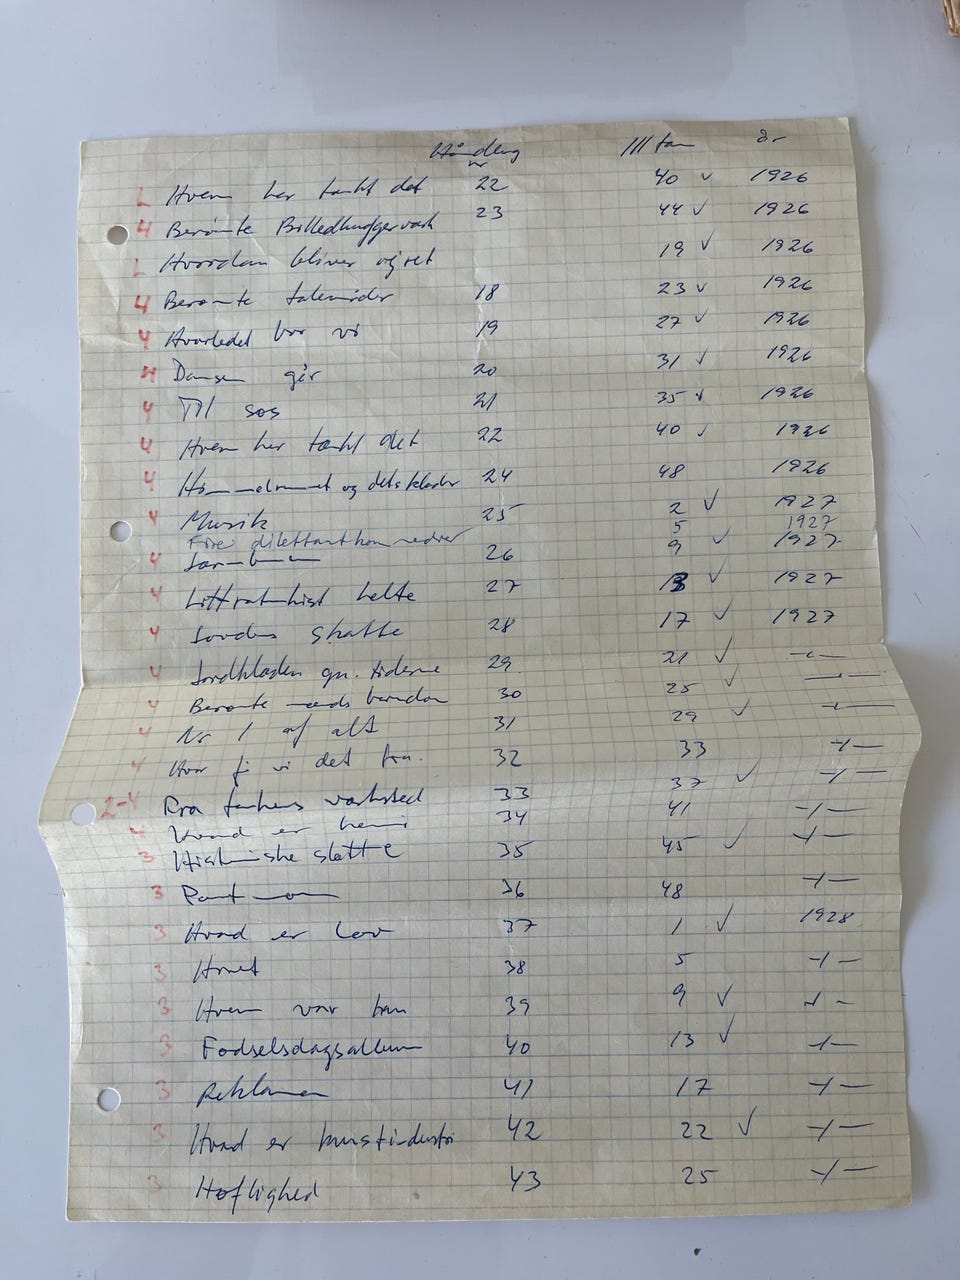 nr år
L Hvem har tænkt det 22 40 ✓ 1926
4 Berømte Billedhuggerværk 23 44 ✓ 1926
L Hvordan bliver vejret 19 ✓ 1926
4 Berømte 18 23 ✓ 1926
4 Hvorledes bor vi 19 27 ✓ 1926
4 Dansen går 20 31 ✓ 1926
4 Til søs 21 35 ✓ 1926
4 Hvem har tænkt det 22 40 ✓ 1926
4 og dets klæder 24 48 1926
4 Musik 25 2 ✓ 1927
Fire dilettantkomedier 5 1927
4 26 9 ✓ 1927
4 helte 27 13 ✓ 1927
4 Jordens skatte 28 17 ✓ 1927
4 gn. tiderne 29 21 ✓ -"-
4 Berømte mænds barndom 30 25 ✓ -"-
4 Nr 1 af alt 31 29 ✓ -"-
4 Hvor fik vi det fra. 32 33 -"-
2-4 Fra værksted 33 37 ✓ -"-
4 Hvad er kemi 34 41 -"-
3 Historiske slotte 35 45 ✓ -"-
3 36 48 -"-
3 Hvad er Lov 37 1 ✓ 1928
3 38 5 -"-
3 Hvem var han 39 9 ✓ -"-
3 Fødselsdagsalbum 40 13 ✓ -"-
3 Reklamen 41 17 -"-
3 Hvad er kunstindustri 42 22 ✓ -"-
3 Høflighed 43 25 -"-